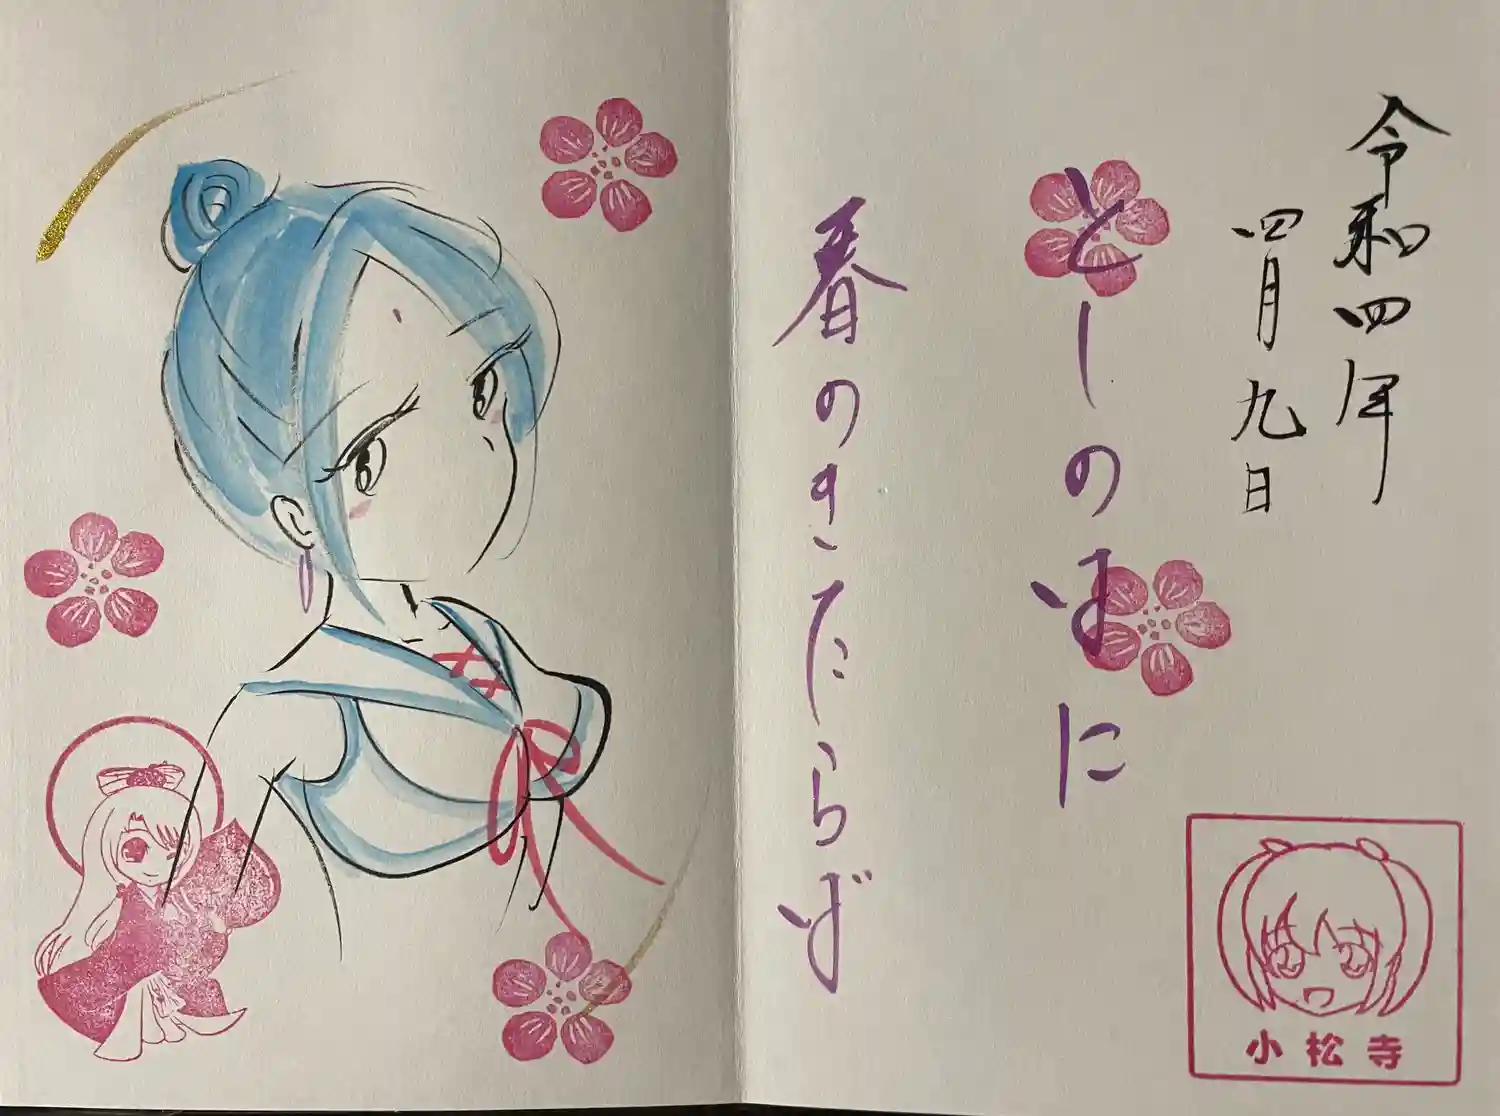 令和四年
四月九日
としのまに
春のきたらば
小松寺